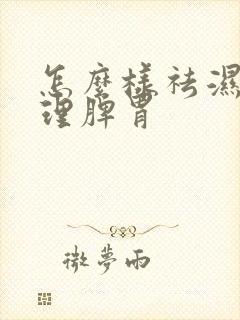 怎麼樣祛濕
理脾胃
微夢雨